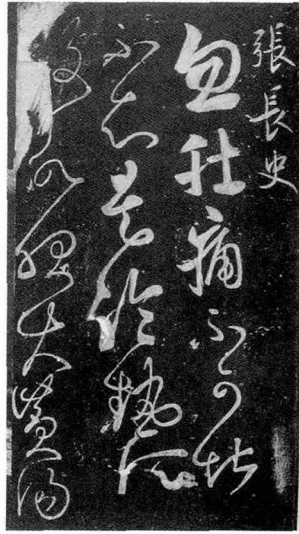 張長史
忽肚痛不可堪
不知是冷熱所
致欲服大黃湯